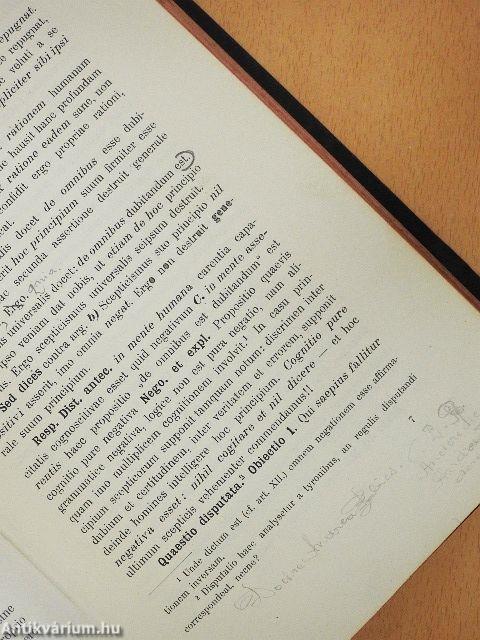 repugnat.
e repugnat,
veluti a se
pliciter sibi ipsi
rationem humanam
e hausit hanc profundam
ratione eadem sane, non
confidit ergo propriae rationi,
cat.
alis docet de omnibus esse dubi-
rit hoc principium suum firmiter esse
ac secunda assertione destruit generale
Ergo.
us universalis docet: de omnibus dubitandum est.
ipso veniam dat nobis, ut etiam de hoc principio
us. Ergo scepticismus universalis seipsum destruit.
Sed dices contra arg. b) Scepticismus suo principio nil
positivi asserit, imo omnia negat. Ergo non destruit gene-
rale suum principium.
Resp. Dist. antec. in mente humana carentia capa-
citatis cognoscitivae esset quid negativum C. in mente asse-
rentis haec propositio „de omnibus est dubitandum" est
cognitio pure negativa Nego. et expl. Propositio quaevis
grammatice negativa, logice non est pura negatio, nam ali-
quam imo multiplicem cognitionem involvit.¹ In casu prin-
cipium scepticorum supponit tamquam notum: discrimen inter
dubium et certitudinem, inter veritatem et errorem, supponit
deinde homines intelligere hoc principium. Cognitio pure
negativa esset: nihil cogitare et nil dicere — et hoc
ultimum scepticis vehementer commendamus!!
Quaestio disputata.² Obiectio 1. Qui saepius fallitur
¹ Unde dictum est (cf. art. XII.) omnem negationem esse affirma-
tionem inversam.
² Disputatio haec analysetur a tyronibus, an regulis disputandi
correspondeat, necne?
7
Antikvárium.hu